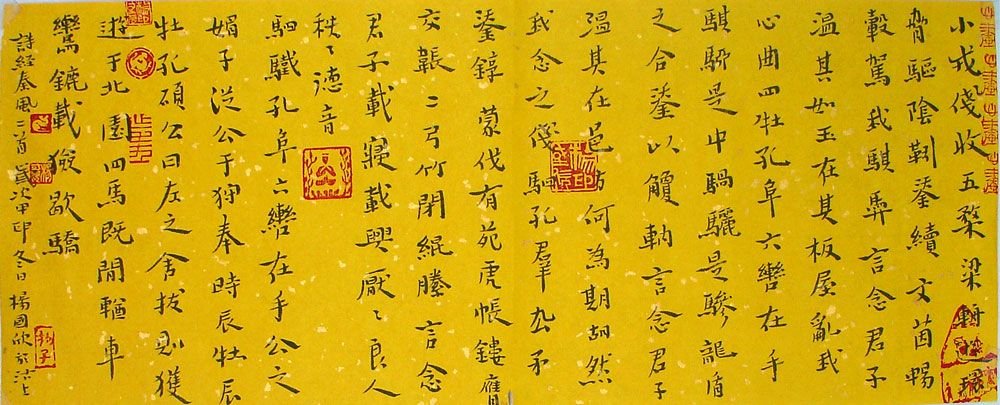 小戎俴收五楘梁輈環
脅驅陰靷鋈續文茵暢
轂駕我騏馵言念君子
溫其如玉在其板屋亂我
心曲四牡孔阜六轡在手
騏駵是中騧驪是驂龍盾
之合鋈以觼軜言念君子
溫其在邑方何為期胡然
我念之俴駟孔羣厹矛
鋈錞蒙伐有苑虎帳鏤膺
交韔二弓竹閉緄縢言念
君子載寢載興厭〻良人
秩〻德音
駟驖孔阜六轡在手公之
媚子從公于狩奉時辰牡辰
牡孔碩公曰左之舍拔則獲
遊于北園四馬既閒輶車
鸞鑣載獫歇驕
詩經秦風二首歲次甲申冬日楊國欣於沽上